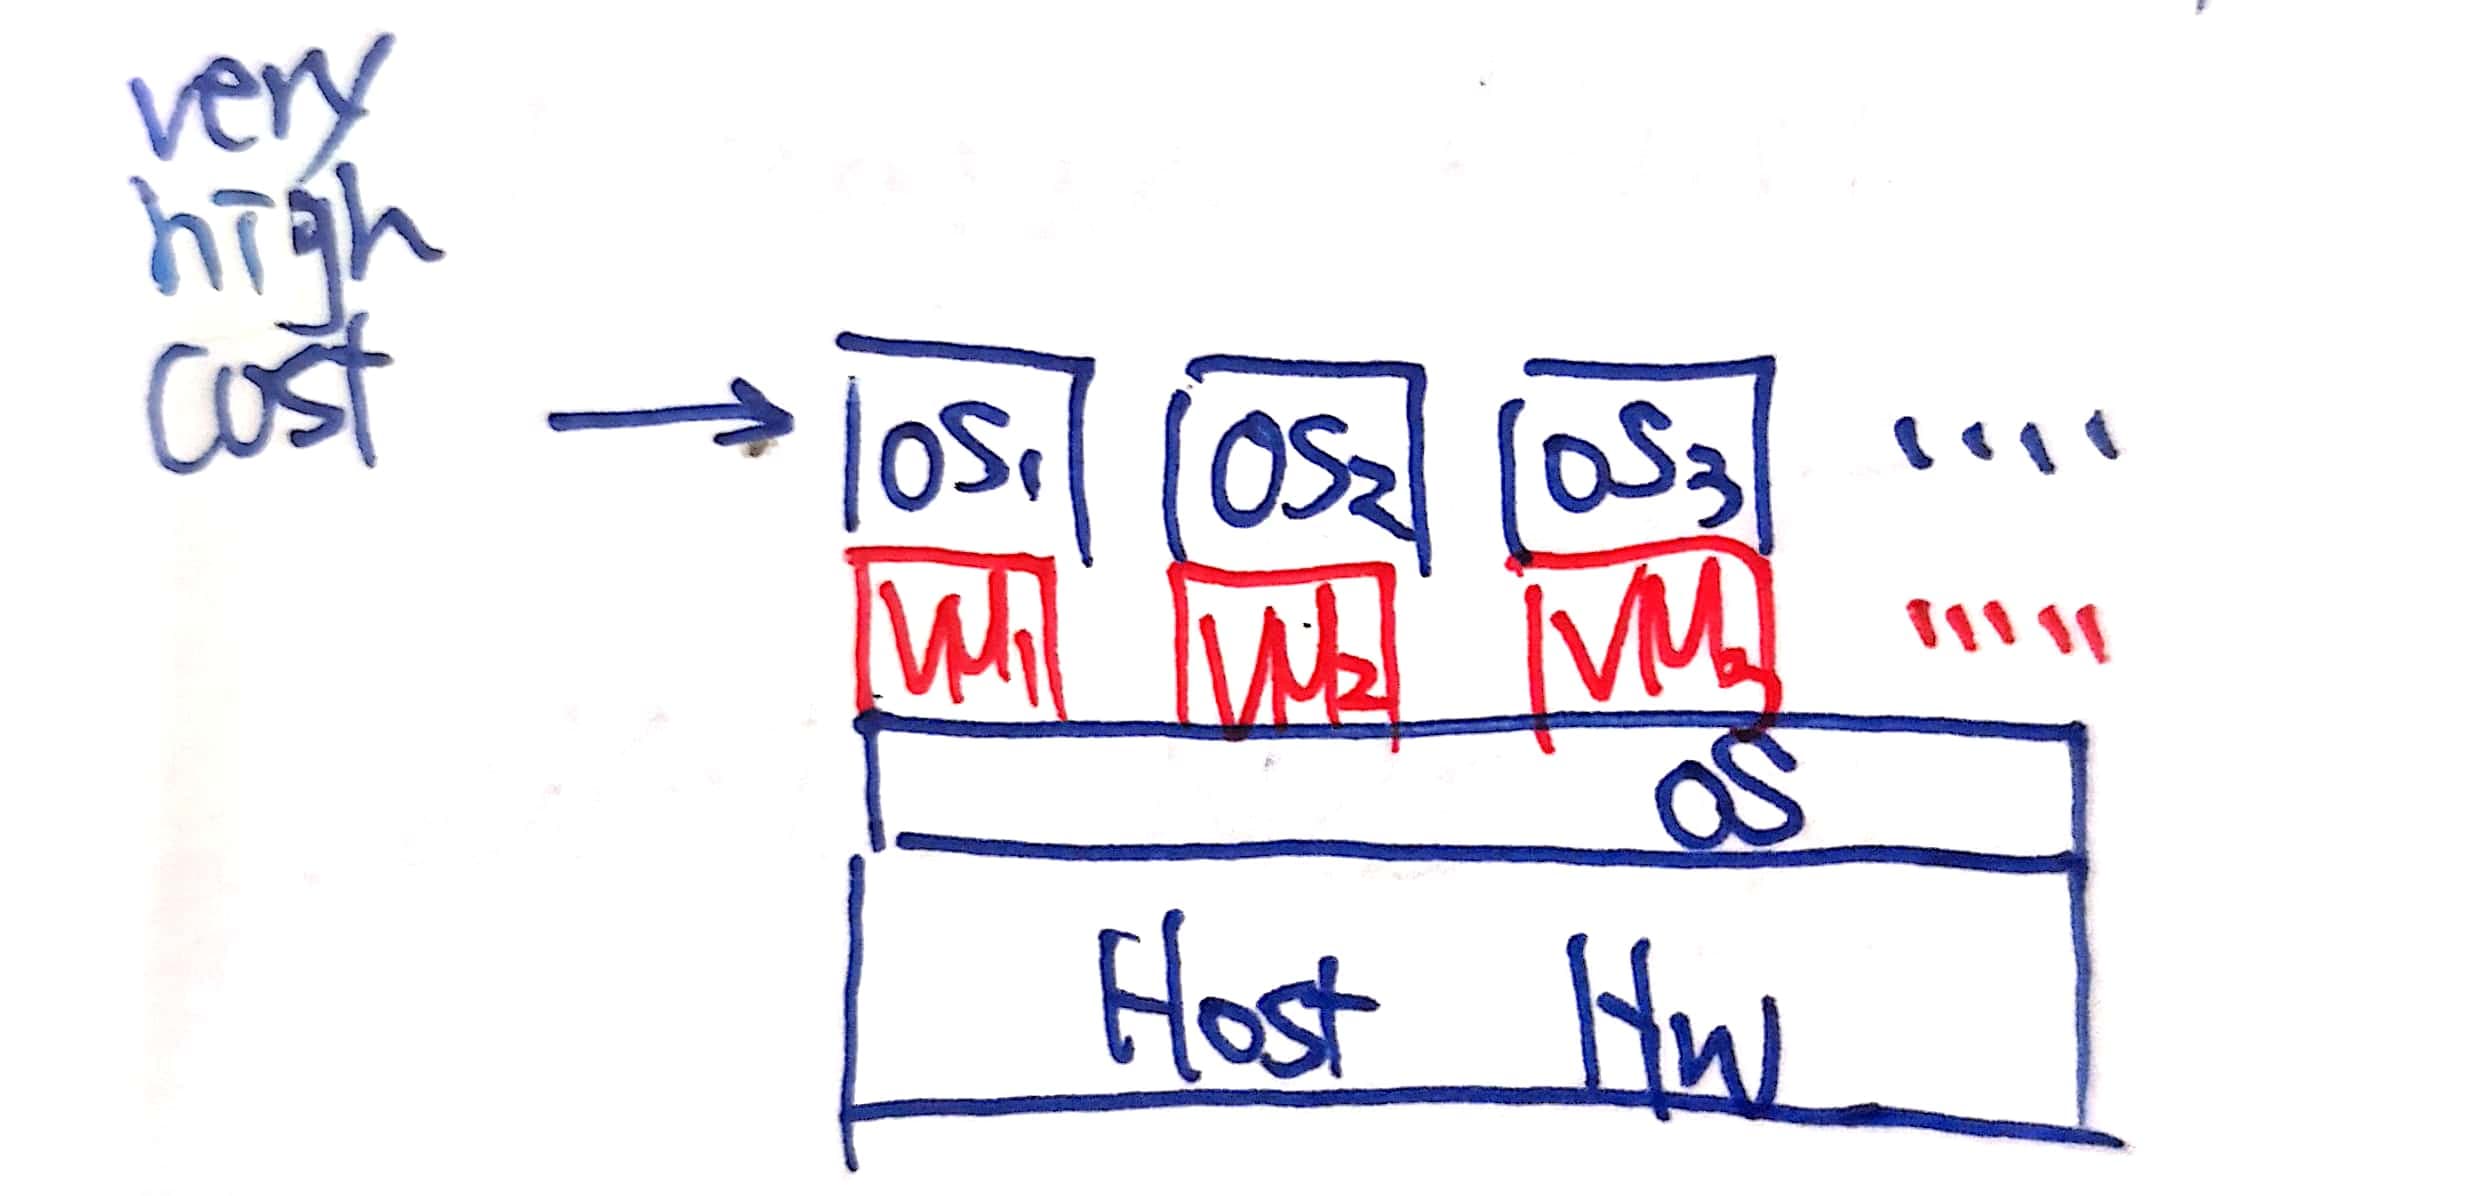 very
high
cost
→ OS1 OS2 OS3 ....
VM1 VM2 VM3 .....
OS
Host HW